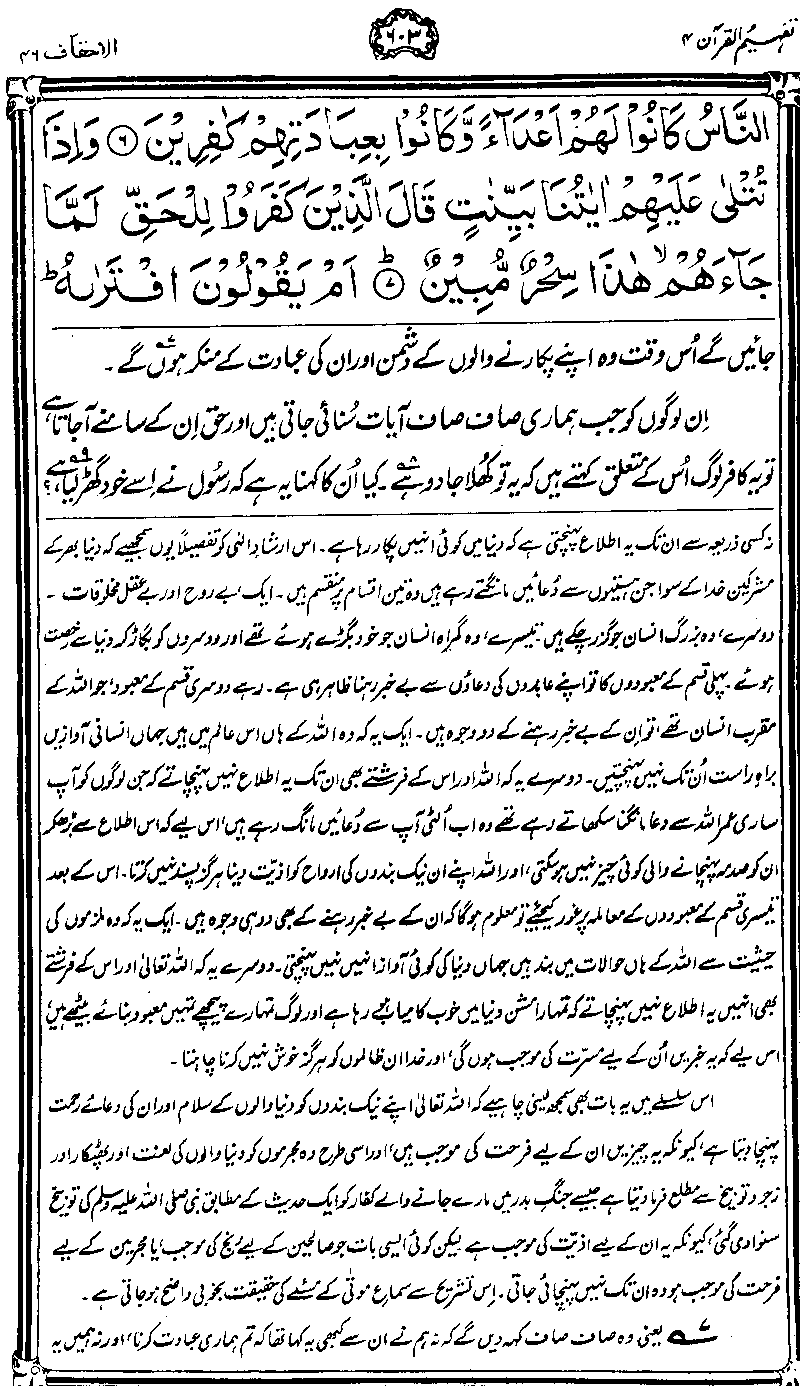 تفہیم القرآن ۴
۶۰۳
الاحقاف ۴۶
النَّاسُ كَانُوْا لَهُمْ اَعْدَآءً وَّكَانُوْا بِعِبَادَتِهِمْ كٰفِرِيْنَ ۝۶ وَاِذَا
تُتْلٰى عَلَيْهِمْ اٰيٰتُنَا بَيِّنٰتٍ قَالَ الَّذِيْنَ كَفَرُوْا لِلْحَقِّ لَمَّا
جَآءَهُمْ ۙ هٰذَا سِحْرٌ مُّبِيْنٌ ؕ۝۷ اَمْ يَقُوْلُوْنَ افْتَرٰىهُ ؕ
جائیں گے اُس وقت وہ اپنے پکارنے والوں کے دُشمن اور ان کی عبادت کے منکر ہوں گے۷۔
اِن لوگوں کو جب ہماری صاف صاف آیات سُنائی جاتی ہیں اور حق اِن کے سامنے آجاتا ہے
تو یہ کافر لوگ اُس کے متعلق کہتے ہیں کہ یہ تو کُھلا جادو ہے۸۔ کیا اُن کا کہنا یہ ہے کہ رسُول نے اِسے خود گھڑ لیا ہے۹؟
نہ کسی ذریعہ سے ان تک یہ اطلاع پہنچتی ہے کہ دنیا میں کوئی انہیں پکار رہا ہے۔ اس ارشاد الٰہی کو تفصیلاً یوں سمجھیے کہ دنیا بھر کے
مشرکین خدا کے سوا جن ہستیوں سے دُعائیں مانگتے رہے ہیں وہ تین اقسام پر منقسم ہیں۔ ایک، بے روح اور بے عقل مخلوقات۔
دوسرے، وہ بزرگ انسان جو گزر چکے ہیں۔ تیسرے، وہ گمراہ انسان جو خود بگڑے ہوئے تھے اور دوسروں کو بگاڑ کر دنیا سے رخصت
ہوئے۔ پہلی قسم کے معبودوں کا تو اپنے عابدوں کی دعاؤں سے بے خبر رہنا ظاہر ہی ہے۔ رہے دوسری قسم کے معبود، جو اللہ کے
مقرب انسان تھے، تو اِن کے بے خبر رہنے کے دو وجوہ ہیں۔ ایک یہ کہ وہ اللہ کے ہاں اس عالم میں ہیں جہاں انسانی آوازیں
براہِ راست اُن تک نہیں پہنچتیں۔ دوسرے یہ کہ اللہ اور اس کے فرشتے بھی ان تک یہ اطلاع نہیں پہنچاتے کہ جن لوگوں کو آپ
ساری عمر اللہ سے دعا مانگنا سکھاتے رہے تھے وہ اب اُلٹی آپ سے دُعائیں مانگ رہے ہیں، اس لیے کہ اس اطلاع سے بڑھ کر
ان کو صدمہ پہنچانے والی کوئی چیز نہیں ہو سکتی، اور اللہ اپنے ان نیک بندوں کی ارواح کو اذیّت دینا ہرگز پسند نہیں کرتا۔ اس کے بعد
تیسری قسم کے معبودوں کے معاملہ پر غور کیجیے تو معلوم ہوگا کہ ان کے بے خبر رہنے کے بھی دو ہی وجوہ ہیں۔ ایک یہ کہ وہ ملزموں کی
حیثیت سے اللہ کے ہاں حوالات میں بند ہیں جہاں دنیا کی کوئی آواز انہیں نہیں پہنچتی۔ دوسرے یہ کہ اللہ تعالیٰ اور اس کے فرشتے
بھی انہیں یہ اطلاع نہیں پہنچاتے کہ تمہارا مشن دنیا میں خوب کامیاب ہو رہا ہے اور لوگ تمہارے پیچھے تمہیں معبود بنائے بیٹھے ہیں،
اس لیے کہ یہ خبریں اُن کے لیے مسرّت کی موجب ہوں گی، اور خدا ان ظالموں کو ہرگز خوش نہیں کرنا چاہتا۔
اس سلسلے میں یہ بات بھی سمجھ لینی چاہیے کہ اللہ تعالیٰ اپنے نیک بندوں کو دنیا والوں کے سلام اور ان کی دعائے رحمت
پہنچا دیتا ہے، کیونکہ یہ چیزیں ان کے لیے فرحت کی موجب ہیں، اور اسی طرح وہ مجرموں کو دنیا والوں کی لعنت اور پھٹکار اور
زجر و توبیخ سے مطلع فرما دیتا ہے جیسے جنگِ بدر میں مارے جانے والے کفار کو ایک حدیث کے مطابق نبی صلی اللہ علیہ وسلم کی توبیخ
سنوا دی گئی، کیونکہ یہ ان کے لیے اذیّت کی موجب ہے۔ لیکن کوئی ایسی بات جو صالحین کے لیے رنج کی موجب، یا مجرمین کے لیے
فرحت کی موجب ہو وہ ان تک نہیں پہنچائی جاتی۔ اِس تشریح سے سماعِ موتٰی کے مسئلے کی حقیقت بخوبی واضح ہو جاتی ہے۔
۷ یعنی وہ صاف صاف کہہ دیں گے کہ نہ ہم نے ان سے کبھی یہ کہا تھا کہ تم ہماری عبادت کرنا، اور نہ ہمیں یہ